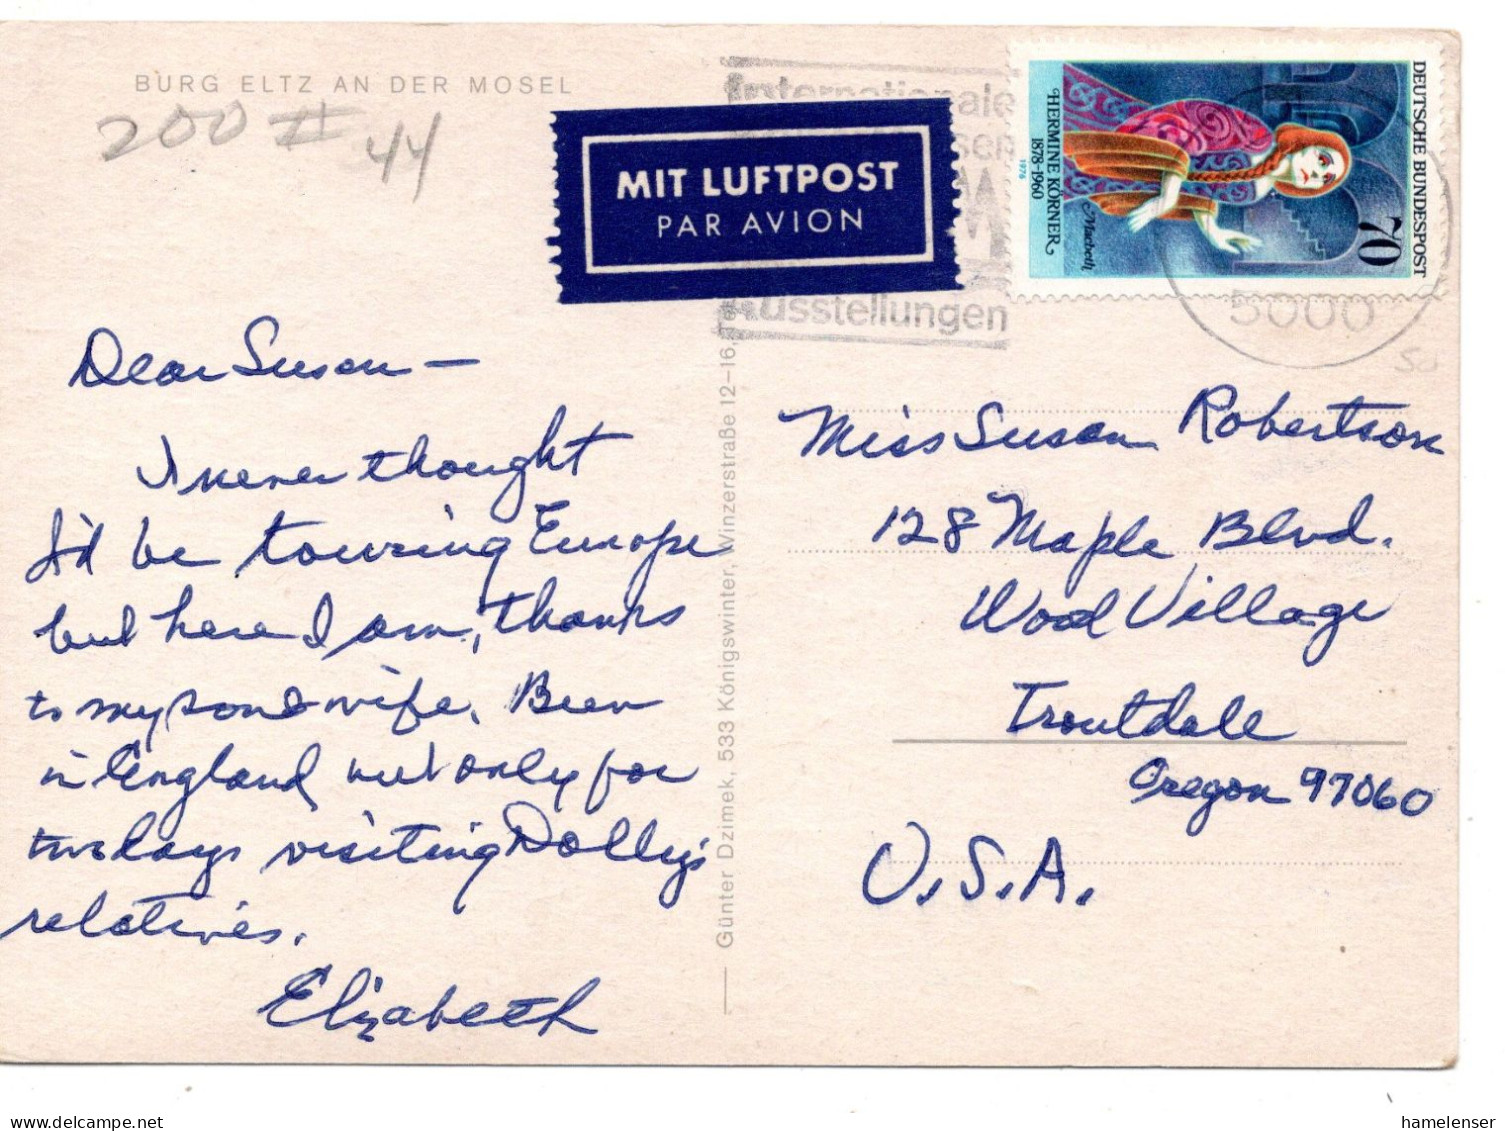 BURG ELTZ AN DER MOSEL
200 # 44
MIT LUFTPOST
PAR AVION
Internationale
Ausstellungen
5000
DEUTSCHE BUNDESPOST
70
Macbeth
HERMINE KÖRNER
1878-1960
1976
Dear Susan —
I never thought
I'd be touring Europe
but here I am, thanks
to my son & wife. Been
in England but only for
two days visiting Dolly's
relatives.
Elizabeth
Günter Dzimek, 533 Königswinter, Winzerstraße 12–16,
Miss Susan Robertson
128 Maple Blvd.
Wood Village
Troutdale
Oregon 97060
U.S.A.
50
hamelenser